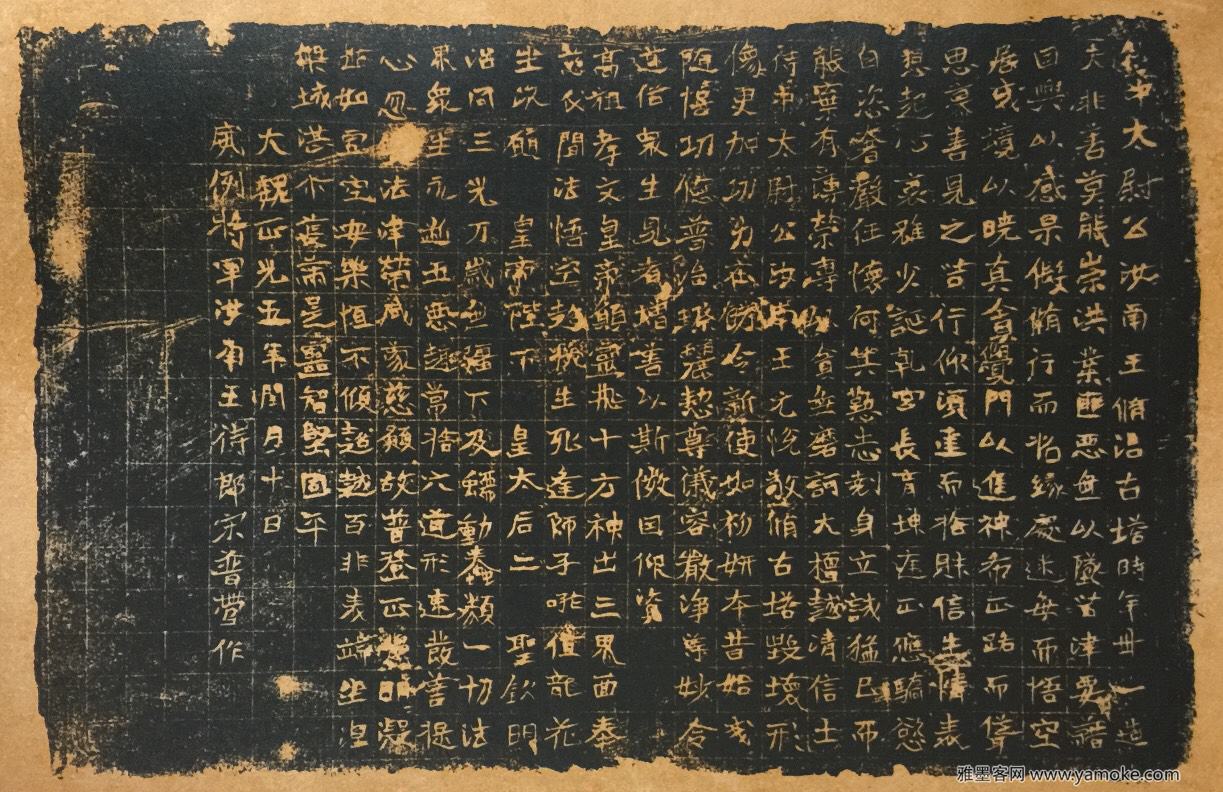 侍中太尉公汝南王脩治古塔時年卅一造
夫非善莫能崇洪業匪惡無以墜苦津要諸
因興以感果儌脩行而招緣處迷每而悟空
居戎境以曉真會覺門以進神希正路而偉
思慕善見之苦行仰須達而捨財信生情表
想起心裹雖少誕乹宮長育坤庭正應驕慾
自恣奢嚴任懷何其懃志剋身立誠猛己而
能寡有薄榮專貪無磨訶大檀越清信士
侍中太尉公汝南王元悅敬脩古塔毀壞形
像更加功勞莊餝令新使如初妍本昔始我
隨憘功悠普治慤尊儀容嚴净尊妙令
道俗眾生見者增善以斯儌因仰資
高祖孝文皇帝顯靈飛十方神出三界面奉
慈仪聞法悟空契挽生死逢師子吼值龍花
坐次願 皇帝陛下 皇太后二 聖欽明
治同三光万歲無疆下及蠕動蠢類一切法
界眾生永逝五惡趣常捨六道形速發菩提
心忍法津榮咸蒙慈願故普登正覺明凝
如虛空安樂恒不傾超越百非表端坐涅
槃城洪不舊常是靈智堅固年
大魏正光五年閏月十日
威例將軍汝南王侍郎宋普營作
雅墨客网 www.yamoke.com